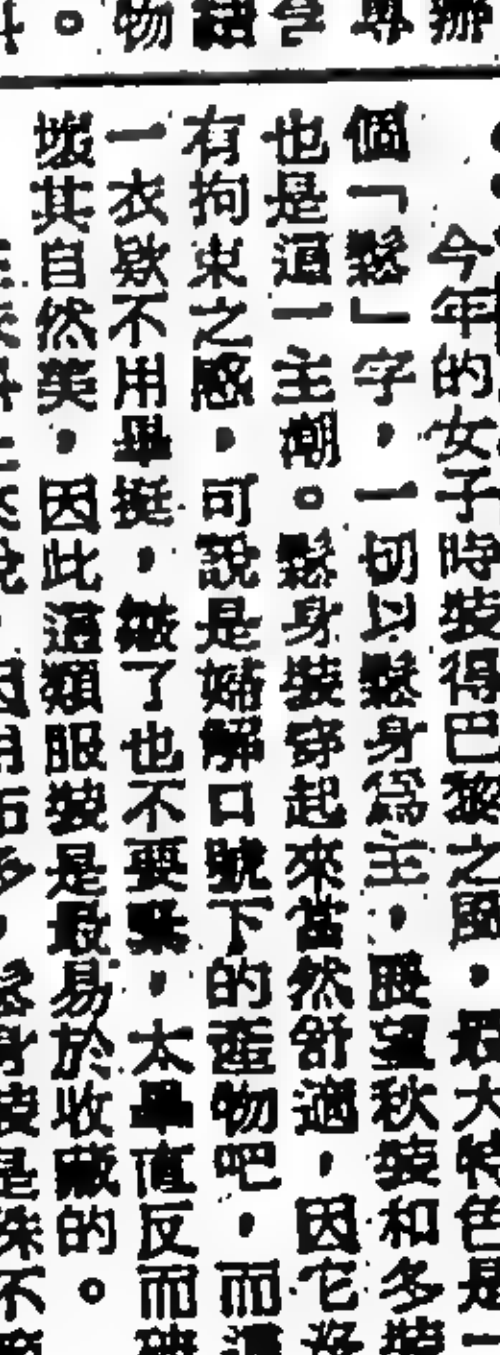 今年的女子時裝得巴黎之風，最大特色是一
個「鬆」字，一切以鬆身為主，展望秋裝和冬裝
也是這一主潮。鬆身裝穿起來當然舒適，因它沒
有拘束之感，可說是婦解口號下的產物吧，而這
一衣欵不用畢挺，皺了也不要緊，太畢直反而破
壞其自然美，因此這類服裝是最易於收藏的。